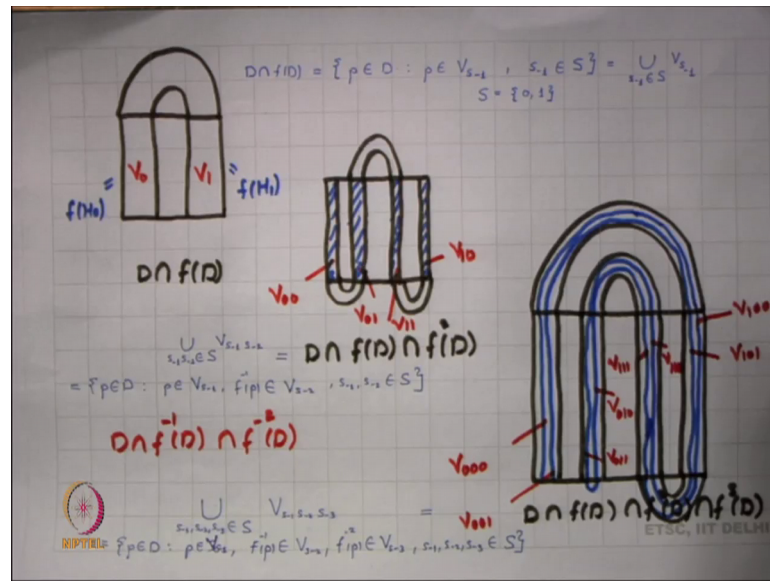 D∩f(D) = {p∈D : p∈V_{s-1}, s_{-1}∈S} = ∪_{s_{-1}∈S} V_{s-1}
S = {0,1}
V₀
V₁
f(H₀) =
= f(H₁)
D∩f(D)
V₀₀
V₀₁
V₁₁
V₁₀
∪_{s_{-1}s_{-2}∈S} V_{s-1 s-2} = D∩f(D)∩f²(D)
= {p∈D : p∈V_{s-1}, f⁻¹(p)∈V_{s-2}, s_{-1},s_{-2}∈S}
D∩f⁻¹(D)∩f⁻²(D)
V₁₀₀
V₁₀₁
V₁₁₁
V₀₁₀
V₀₁₁
V₀₀₀
V₀₀₁
∪_{s_{-1},s_{-2},s_{-3}∈S} V_{s-1 s-2 s-3} = D∩f(D)∩f²(D)∩f³(D)
= {p∈D : p∈V_{s-1}, f⁻¹(p)∈V_{s-2}, f⁻²(p)∈V_{s-3}, s_{-1},s_{-2},s_{-3}∈S}
NPTEL
ETSC, IIT DELHI